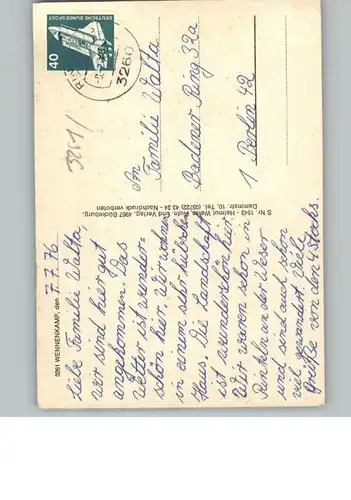 3261 WENNENKAMP, den 7.7.76
Liebe Familie Walta
wir sind hier gut
angekommen. Das
Wetter ist wunder-
schön hier. Wir wohnen
in einem sehr hübschen
Haus. Die Landschaft
ist wunderschön hier.
Wir waren schon in
Rinteln an der Weser
und sind auch schon
viel gewandert. Viele
Grüße von den 4 Stocks.
S Nr. 1543 - Helmut Weise, Verlag, 4967 Bückeburg,
Dammstr. 10, Tel. (05722) 43 24 - Nachdruck verboten
DEUTSCHE BUNDESPOST
40
3260
3261/
An
Familie Walta
Badener Ring 32a
1 Berlin 42